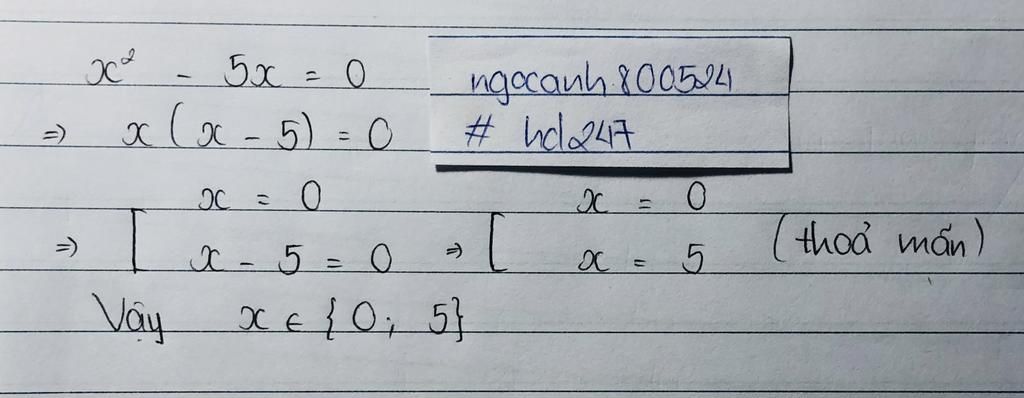 x² - 5x = 0
ngocanh.800524
⇒ x(x - 5) = 0
# hd247
x = 0
x = 0
⇒ [ x - 5 = 0 ⇒ [ x = 5 (thoả mãn)
Vậy x ∈ {0; 5}